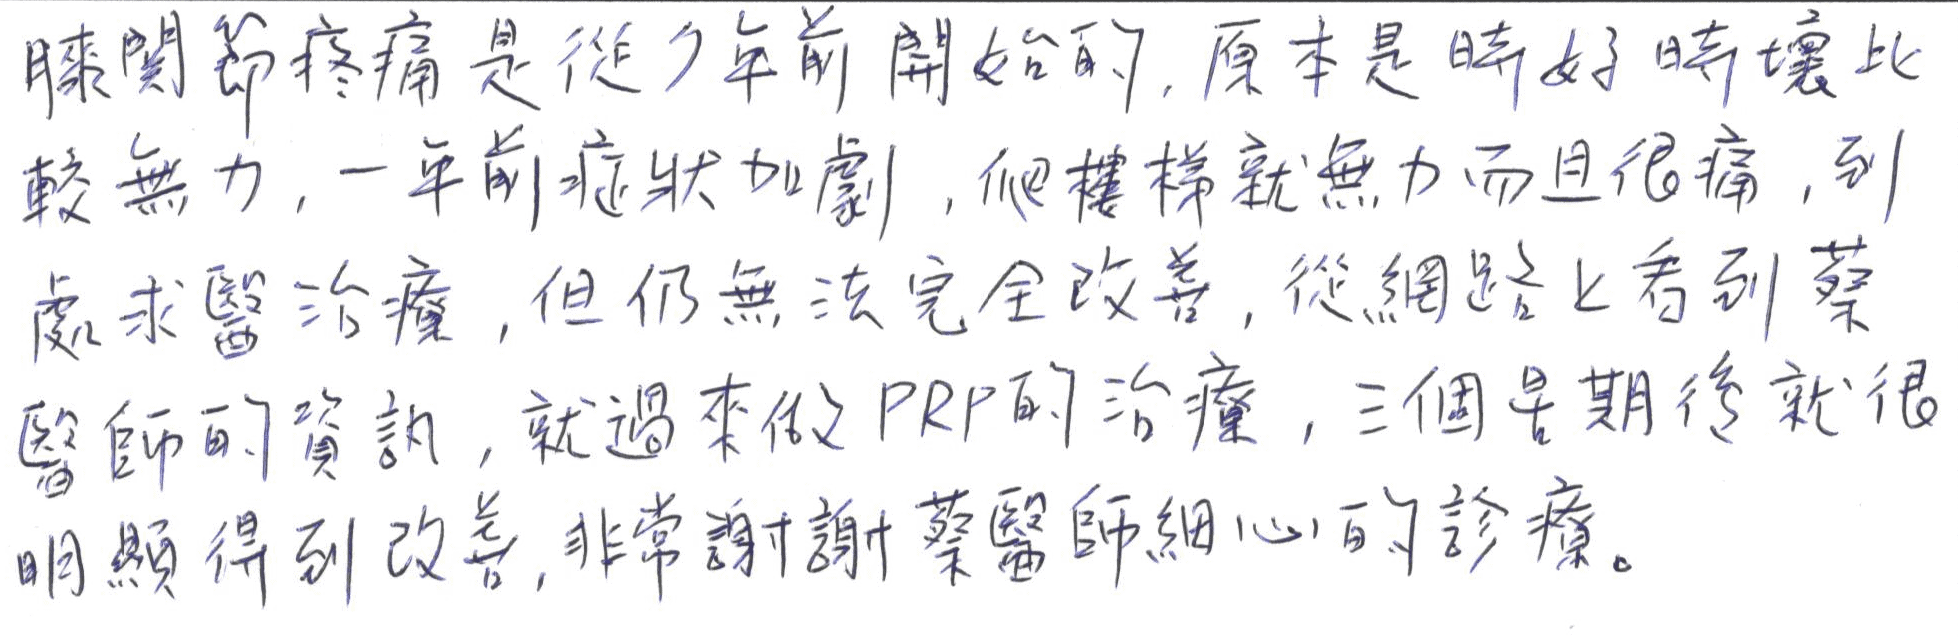 膝關節疼痛是從少年前開始的,原本是時好時壞比
較無力,一年前症狀加劇,爬樓梯就無力而且很痛,到
處求醫治療,但仍無法完全改善,從網路上看到蔡
醫師的資訊,就過來做PRP的治療,三個星期後就很
明顯得到改善,非常謝謝蔡醫師細心的診療。